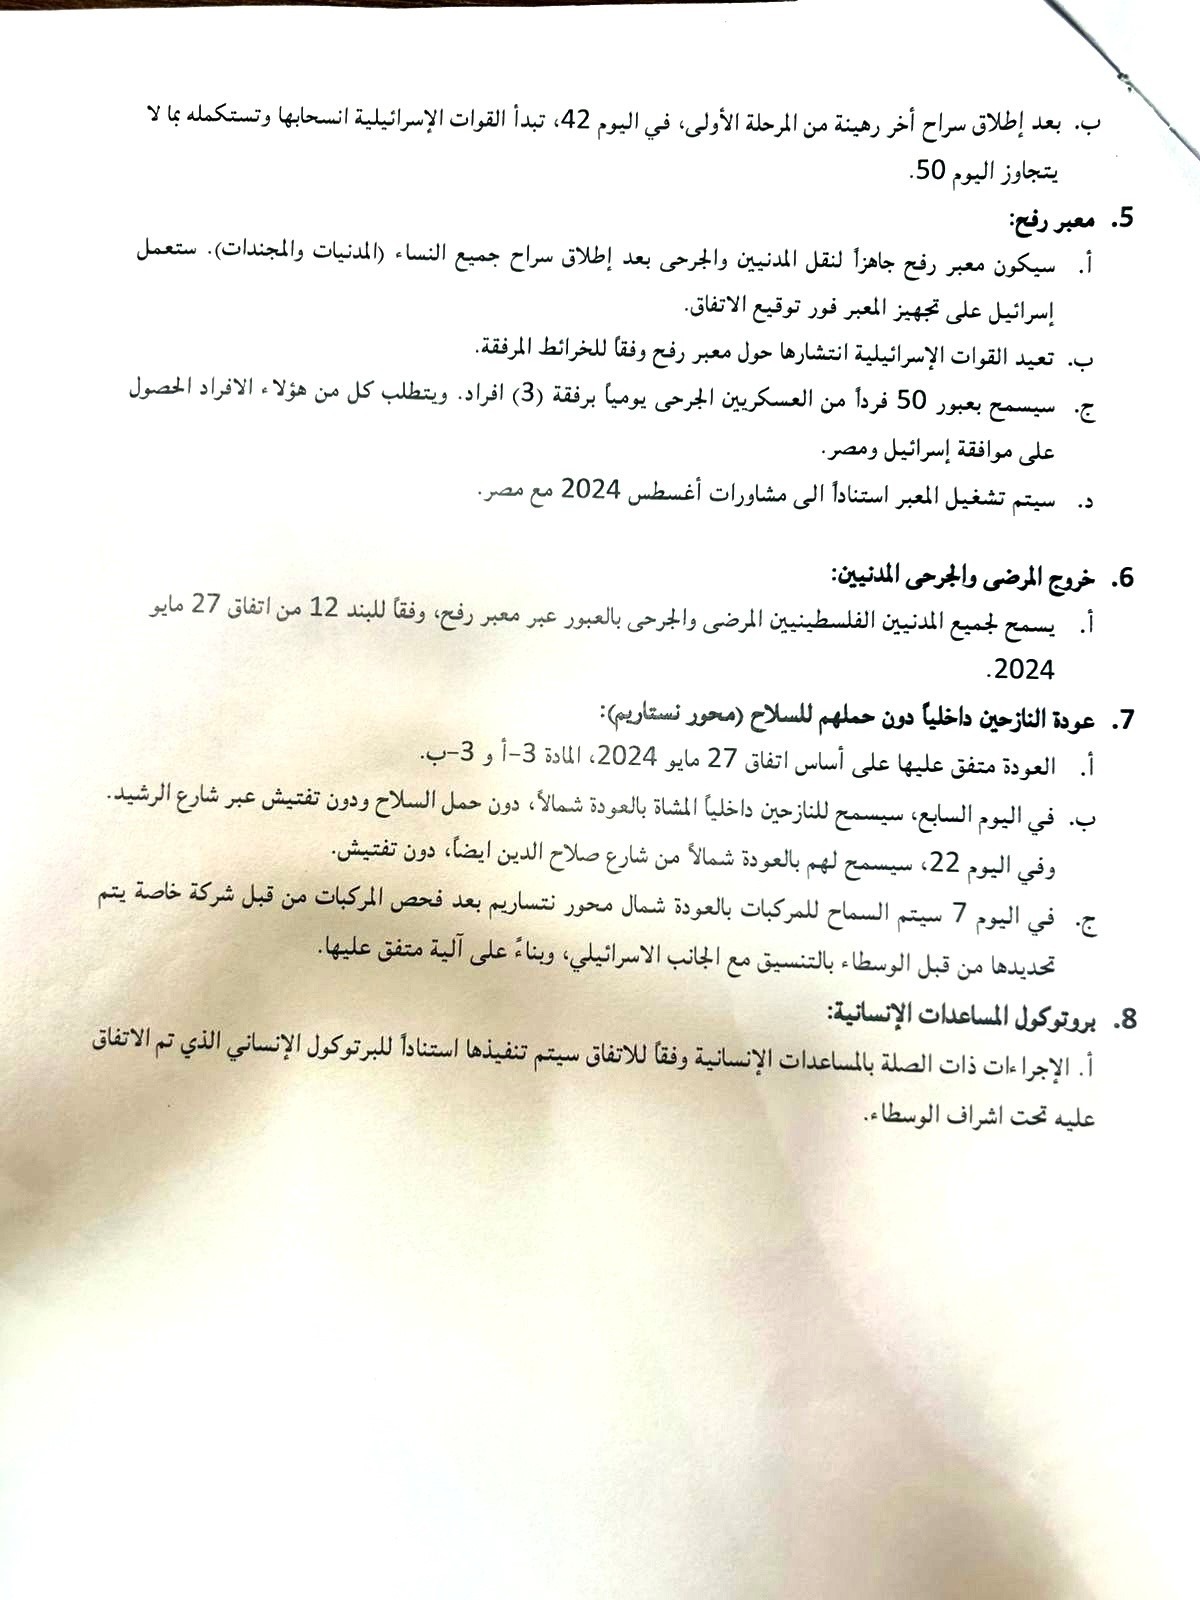 ب. بعد إطلاق سراح أخر رهينة من المرحلة الأولى، في اليوم 42، تبدأ القوات الإسرائيلية انسحابها وتستكمله بما لا
يتجاوز اليوم 50.
5. معبر رفح:
أ. سيكون معبر رفح جاهزاً لنقل المدنيين والجرحى بعد إطلاق سراح جميع النساء (المدنيات والمجندات). ستعمل
إسرائيل على تجهيز المعبر فور توقيع الاتفاق.
ب. تعيد القوات الإسرائيلية انتشارها حول معبر رفح وفقاً للخرائط المرفقة.
ج. سيسمح بعبور 50 فرداً من العسكريين الجرحى يومياً برفقة (3) افراد. ويتطلب كل من هؤلاء الافراد الحصول
على موافقة إسرائيل ومصر.
د. سيتم تشغيل المعبر استناداً الى مشاورات أغسطس 2024 مع مصر.
6. خروج المرضى والجرحى المدنيين:
أ. يسمح لجميع المدنيين الفلسطينيين المرضى والجرحى بالعبور عبر معبر رفح، وفقاً للبند 12 من اتفاق 27 مايو
2024.
7. عودة النازحين داخلياً دون حملهم للسلاح (محور نستاريم):
أ. العودة متفق عليها على أساس اتفاق 27 مايو 2024، المادة 3-أ و 3-ب.
ب. في اليوم السابع، سيسمح للنازحين داخلياً المشاة بالعودة شمالاً، دون حمل السلاح ودون تفتيش عبر شارع الرشيد.
وفي اليوم 22، سيسمح لهم بالعودة شمالاً من شارع صلاح الدين ايضاً، دون تفتيش.
ج. في اليوم 7 سيتم السماح للمركبات بالعودة شمال محور نتساريم بعد فحص المركبات من قبل شركة خاصة يتم
تحديدها من قبل الوسطاء بالتنسيق مع الجانب الاسرائيلي، وبناءً على آلية متفق عليها.
8. بروتوكول المساعدات الإنسانية:
أ. الإجراءات ذات الصلة بالمساعدات الإنسانية وفقاً للاتفاق سيتم تنفيذها استناداً للبرتوكول الإنساني الذي تم الاتفاق
عليه تحت اشراف الوسطاء.